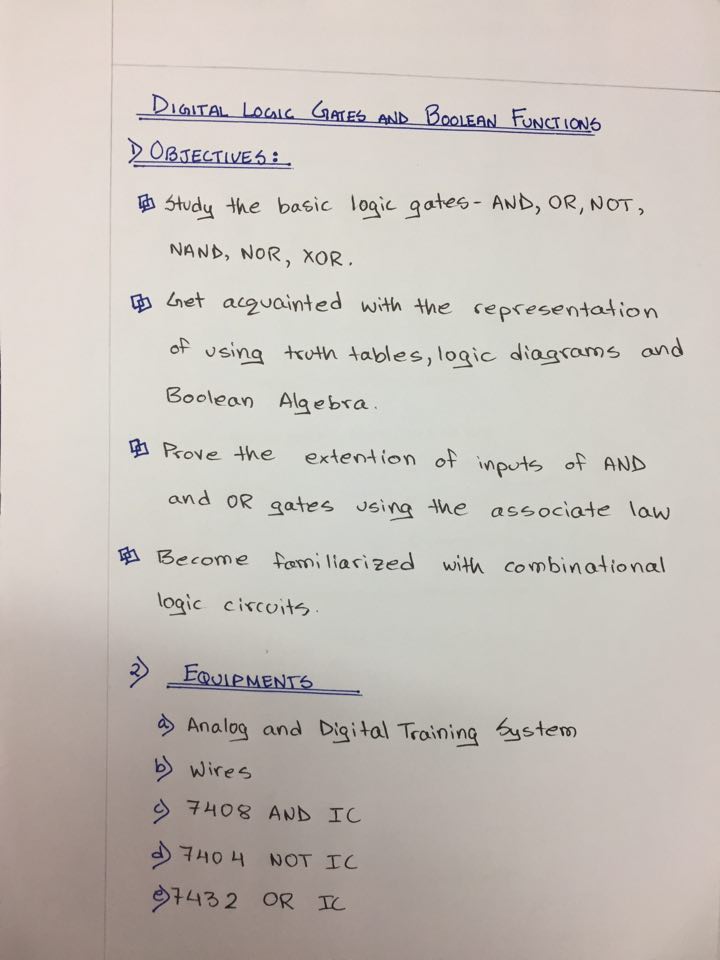 DIGITAL LOGIC GATES AND BOOLEAN FUNCTIONS
1) OBJECTIVES:
Study the basic logic gates- AND, OR, NOT,
NAND, NOR, XOR.
Get acquainted with the representation
of using truth tables, logic diagrams and
Boolean Algebra.
Prove the extention of inputs of AND
and OR gates using the associate law
Become familiarized with combinational
logic circuits.
2) EQUIPMENTS
a) Analog and Digital Training System
b) Wires
c) 7408 AND IC
d) 7404 NOT IC
e) 7432 OR IC